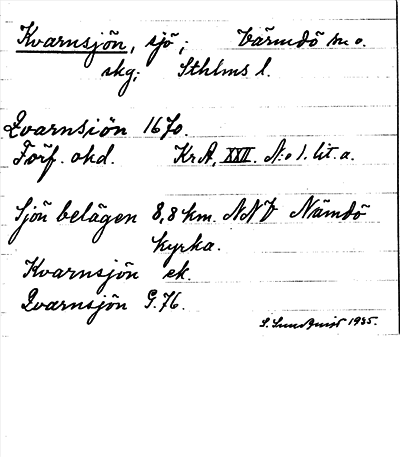 Kvarnsjön, sjö; Värmdö m. o.
skg; Sthlms l.
Qvarnsiön 1670.
Förf. okd. KrA, XXII. N:o 1. lit. a.
Sjön belägen 8,8 km. NNV Nämdö
kyrka.
Kvarnsjön ek.
Qvarnsjön G. 76.
S. Sundquist 1935.